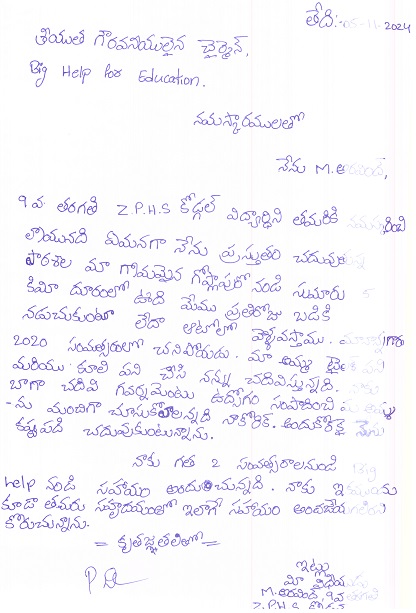 తేది:-05-11-2024
శ్రీయుత గౌరవనీయులైన ఛైర్మాన్,
Big Help for Education.
నమస్కారములతో
నేను M.అరవింద్,
9వ తరగతి Z.P.H.S కోడ్గల్ విద్యార్థిని తమరికి
వ్రాయునది ఏమనగా నేను ప్రస్తుతం చదువుతున్న
పాఠశాల మా గ్రామమైన నుండి సుమారు 5
కిమీ దూరంలో ఉంది మేము ప్రతిరోజు బడికి
నడుచుకుంటూ లేదా ఆటోలో వెళ్ళివస్తాము.
2020 సంవత్సరంలో చనిపోయాడు. మా అమ్మ పని
మరియు కూలి పని చేసి నన్ను చదివిస్తున్నది.
బాగా చదివి గవర్నమెంటు ఉద్యోగం సంపాదించి మా అమ్మ
-ను మంచిగా చూసుకోవాలన్నది నాకోరిక. అందుకోరకై నేను
కష్టపడి చదువుకుంటున్నాను.
నాకు గత 2 సంవత్సరాలనుండి Big
help నుండి సహాయం అందుచున్నది. నాకు
కూడా తమరు సహృదయంతో ఇలాగే సహాయం
కోరుచున్నాను.
= కృతజ్ఞతలతో =
ఇట్లు
మీ విధేయుడు
M.అరవింద్, 9వ తరగతి
Z.P.H.S